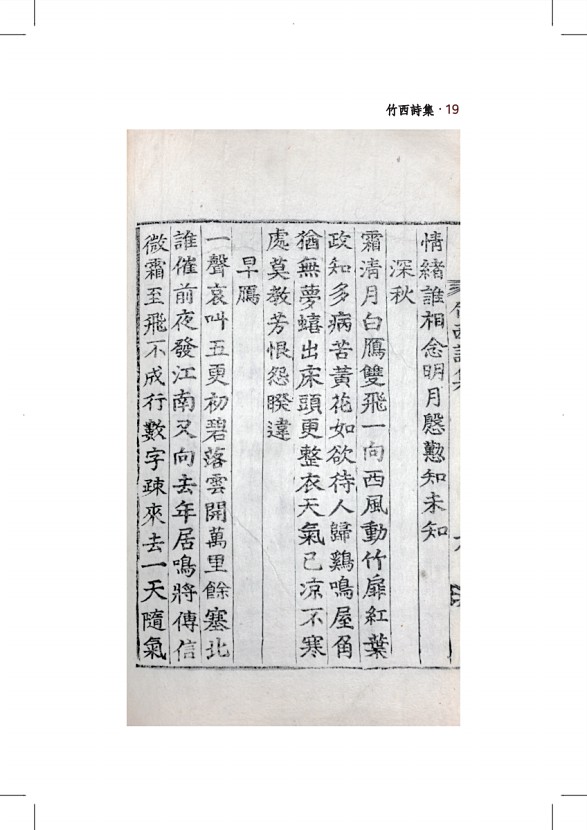 竹西詩集 · 19
情緖誰相念明月慇懃知未知
深秋
霜淸月白鴈雙飛一向西風動竹扉紅葉
政知多病苦黃花如欲待人歸鷄鳴屋角
猶無夢蟢出床頭更整衣天氣已凉不寒
處莫敎芳恨怨睽違
早鴈
一聲哀叫五更初碧落雲開萬里餘塞北
誰催前夜發江南又向去年居鳴將傳信
微霜至飛不成行數字疎來去一天隨氣